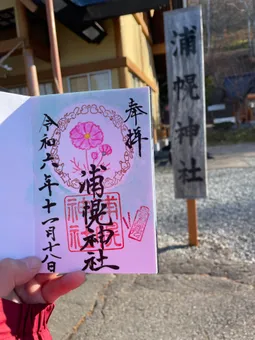 奉拝
浦幌神社
令和六年十一月十八日
浦幌神社